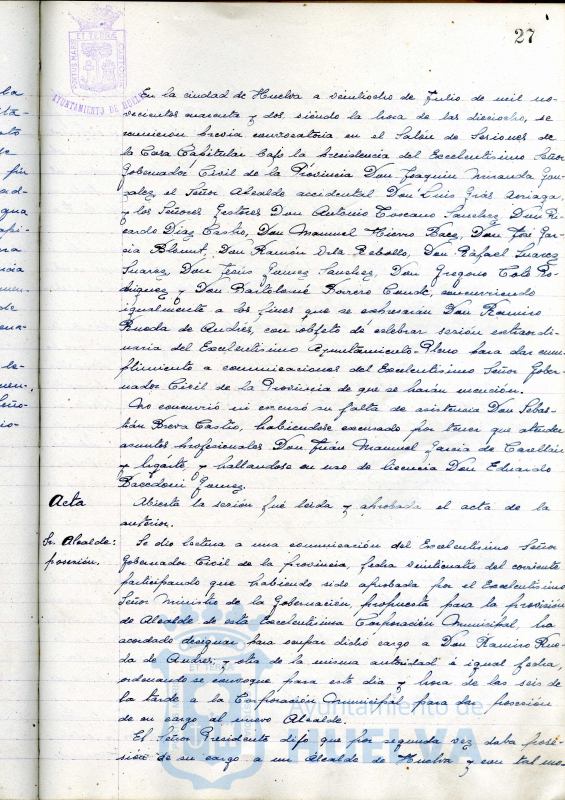 27
PORTUS MARIS ET TERRAE CUSTODIA
AYUNTAMIENTO DE HUELVA
En la ciudad de Huelva a veintiocho de Julio de mil no-
vecientos cuarenta y dos siendo la hora de las dieciocho, se
reunieron previa convocatoria en el Salón de Sesiones de
la Casa Capitular bajo la Presidencia del Excelentísimo Señor
Gobernador Civil de la Provincia Don Joaquin Miranda Gon-
zalez, el Señor Alcalde accidental Don Luis Arriaga,
y los Señores Gestores Don Antonio Toscano Sanchez, Don Ri-
cardo Diaz Don Manuel Hierro Baez, Don José Gar-
cia Don Ramón Rebollo, Don Rafael Suarez
Suarez, Don Jesús Gomez Sanchez, Don Gregorio Ro-
driguez y Don Bartolomé Conde, concurriendo
igualmente a los fines que se expresarán Don Ramiro
Rueda de Andrés, con objeto de celebrar sesión extraordi-
naria del Excelentísimo Ayuntamiento-Pleno para dar cum-
plimiento a comunicaciones del Excelentísimo Señor Gober-
nador Civil de la Provincia de que se harán mención.
No concurrió ni excusó su falta de asistencia Don Sebas-
tián Castro, habiendose excusado por tener que atender
asuntos profesionales Don Juán Manuel Garcia de Castellón
y y hallandose en uso de licencia Don Eduardo
Gomez.
Acta
Abierta la sesión fué leida y aprobada el acta de la
anterior.
Sr. Alcalde:
posesión.
Se dio lectura a una comunicación del Excelentísimo Señor
Gobernador Civil de la provincia, fecha veintiCuatro del corriente
participando que habiendo sido aprobada por el Excelentísimo
Señor Ministro de la Gobernación, propuesta para la provisión
de Alcalde de esta Excelentísima Corporación Municipal, ha
acordado designar para ocupar dicho cargo a Don Ramiro Rue-
da de Andrés, y otra de la misma autoridad é igual fecha,
ordenando se convoque para este dia y hora de las seis de
la tarde a la Corporación Municipal para dar posesión
de su cargo al nuevo Alcalde.
El Señor Presidente dijo que por segunda vez daba pose-
sión de su cargo a un Alcalde de Huelva y con tal mo-
Ayuntamiento de
HUELVA